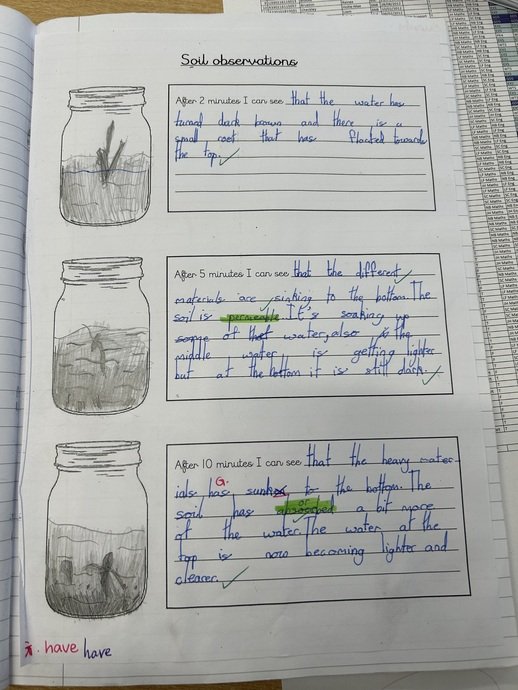 Soil observations
After 2 minutes I can see that the water has
turned dark brown and there is a
small root that has floated towards
the top.
After 5 minutes I can see that the different
materials are sinking to the bottom. The
soil is permeable. It's soaking up
some of that water, also the
middle water is getting lighter
but at the bottom it is still dark.
After 10 minutes I can see that the heavy mater-
G.
ials has sunk to the bottom. The
or
soil has absorbed a bit more
of the water. The water at the
top is now becoming lighter and
clearer.
have have